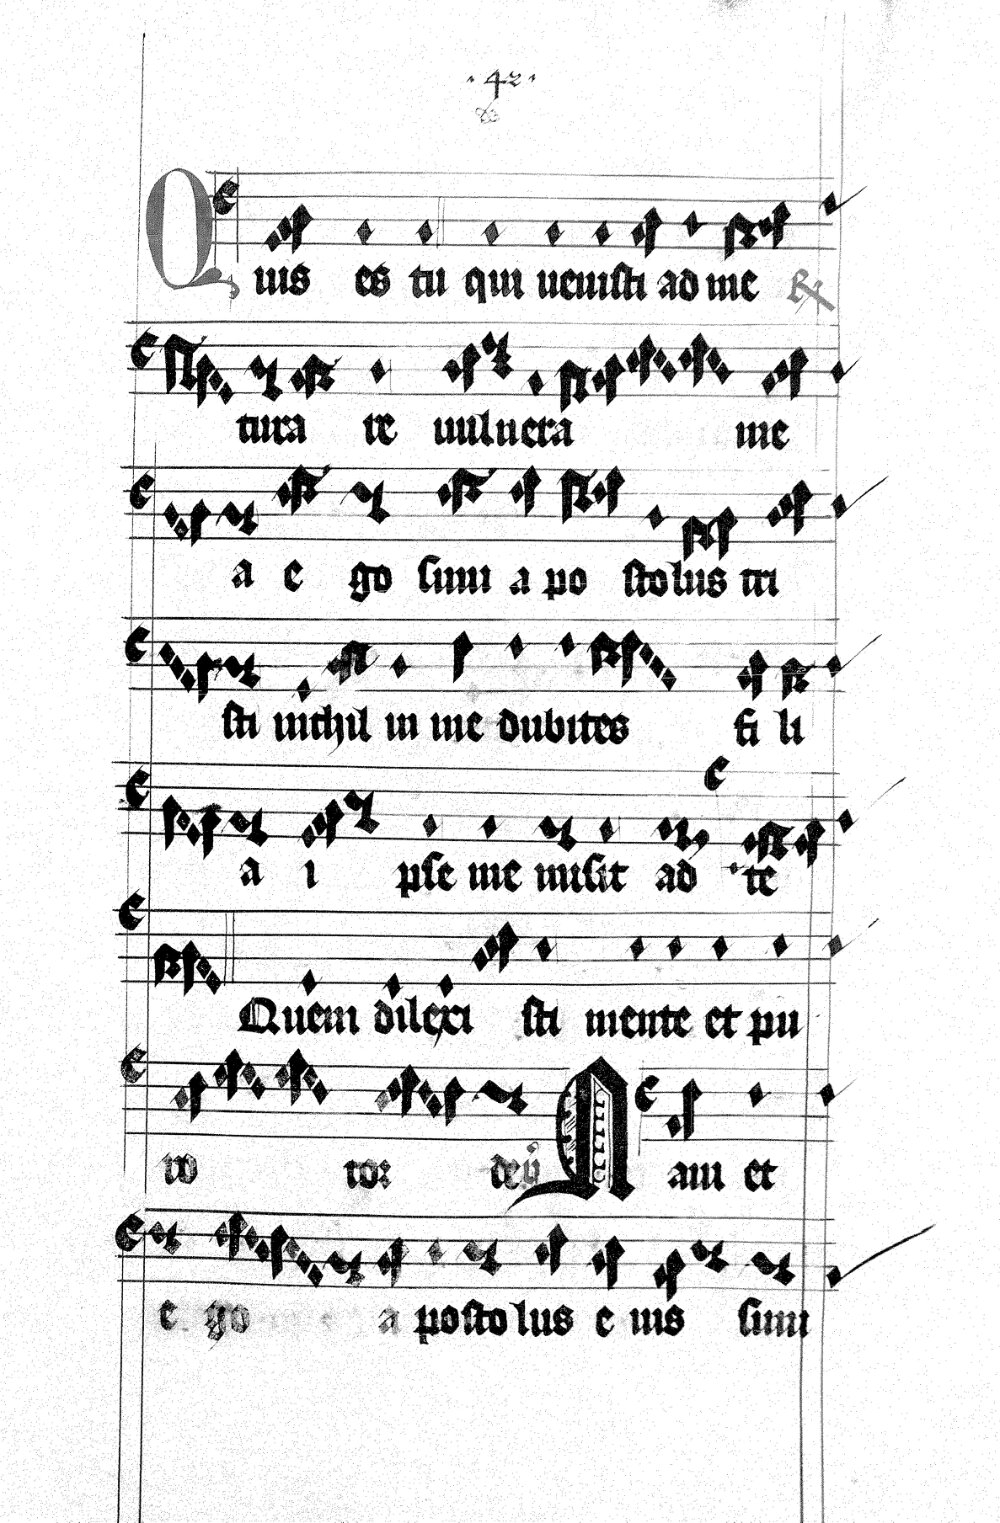 ·42·
Quis es tu qui uenisti ad me
tura te uulnera me
a e go sum a po stolus tri
sti nichil in me dubites fi li
a i pse me misit ad te
Quem dilexi sti mente et pu
ro cor deū Nam et
e go a posto lus e ius sum